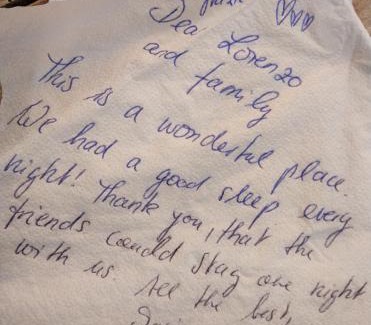 Dear Lorenzo
and family
This is a wonderful place.
We had a good sleep every
night! Thank you, that the
friends could stay one night
with us All the best,